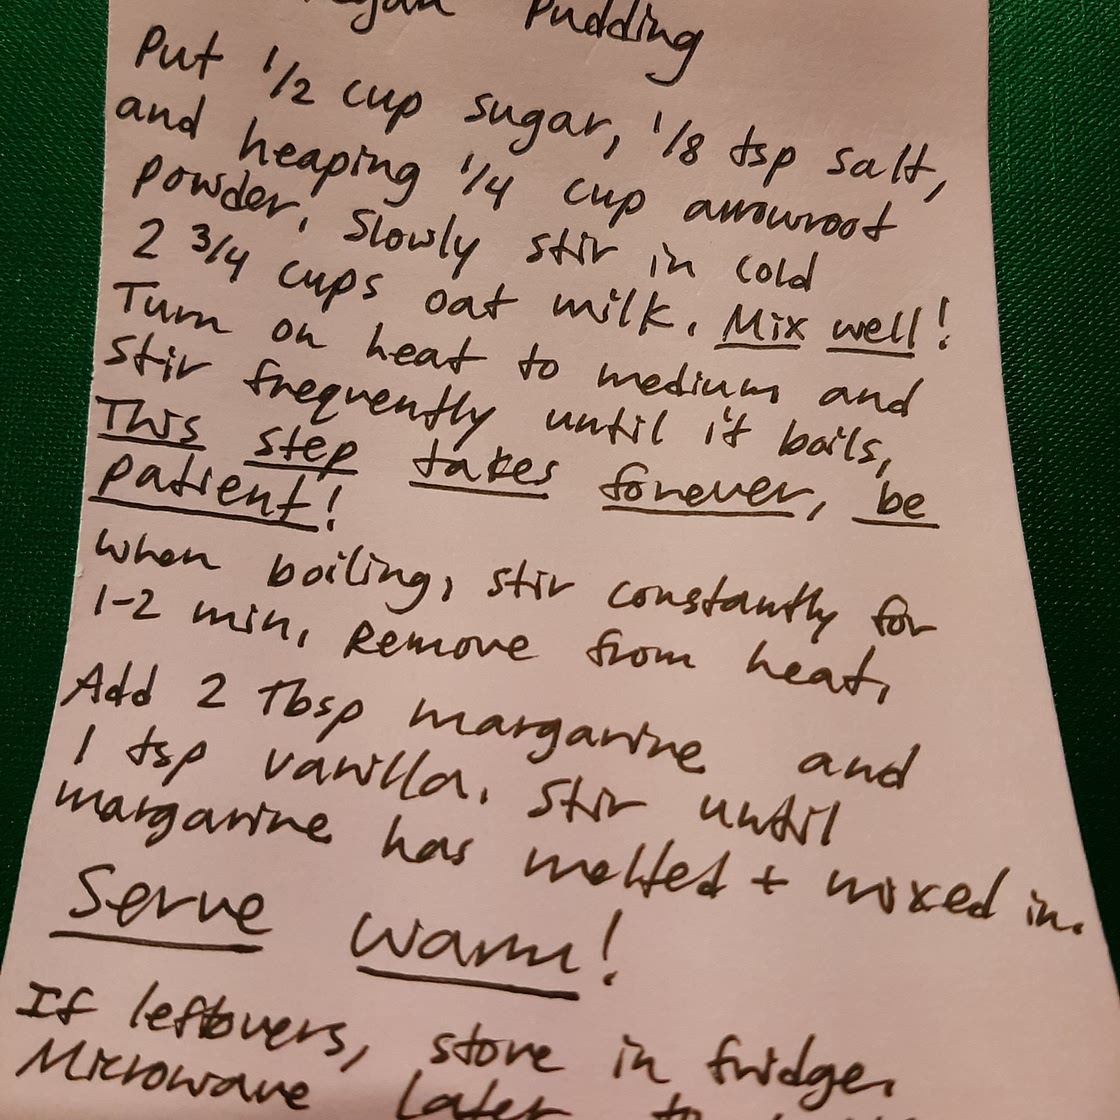 Pudding
Put 1/2 cup sugar, 1/8 tsp salt,
and heaping 1/4 cup arrowroot
powder. Slowly stir in cold
2 3/4 cups oat milk. Mix well!
Turn on heat to medium and
stir frequently until it boils,
This step takes forever, be
patient!
When boiling, stir constantly for
1-2 min. Remove from heat.
Add 2 Tbsp margarine and
1 tsp vanilla. Stir until
margarine has melted + mixed in.
Serve warm!
If leftovers, store in fridge.
Microwave later to